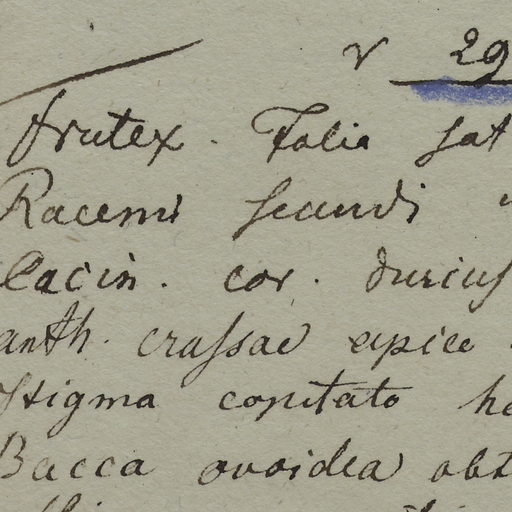 v 29
Frutex. Folia sat
Racemi secundi
lacin. cor. durius
anth. crassae apice
stigma capitato he
Bacca ovoidea obt